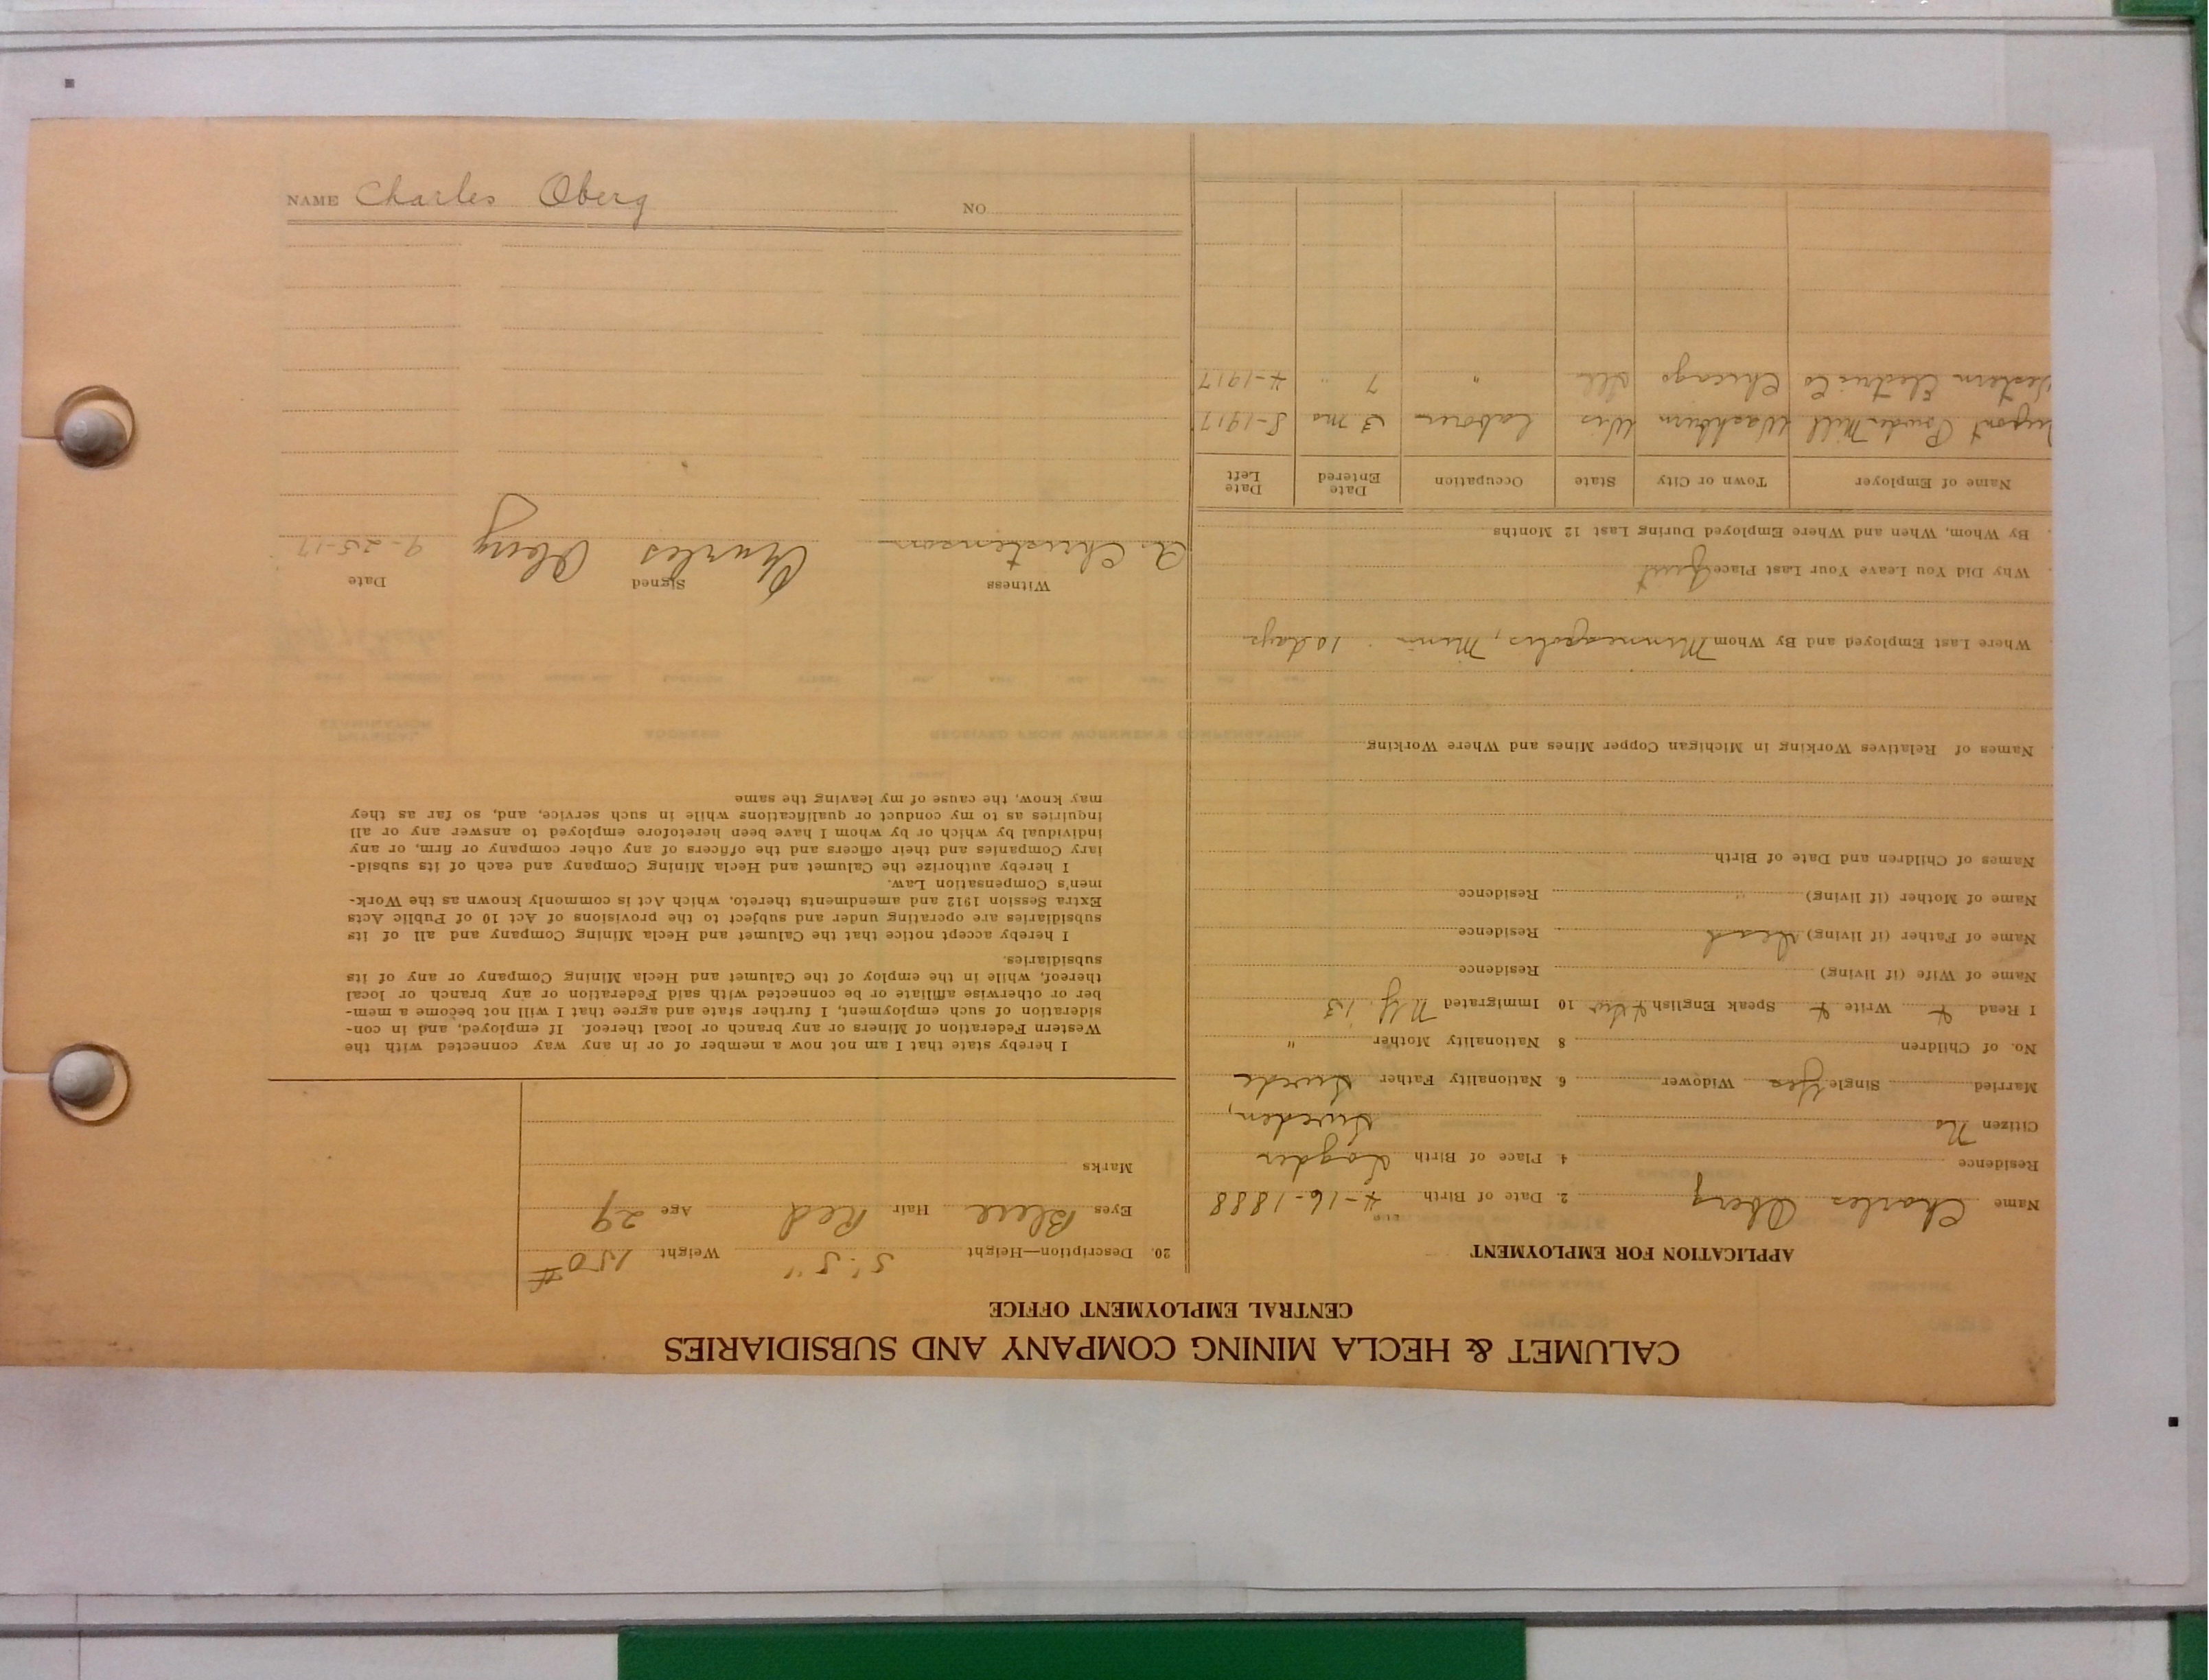 CALUMET & HECLA MINING COMPANY AND SUBSIDIARIES
CENTRAL EMPLOYMENT OFFICE
APPLICATION FOR EMPLOYMENT
Name Charles Oberg 2. Date of Birth 4-16-1888
Residence 4. Place of Birth
Citizen No Sweden,
Married Single Yes Widower 6. Nationality Father Swede
No. of Children 8 Nationality Mother "
I Read Write Speak English 10 Immigrated N.Y. '13
Name of Wife (if living) Residence
Name of Father (if living) Dead Residence
Name of Mother (if living) " Residence
Names of Children and Date of Birth
Names of Relatives Working in Michigan Copper Mines and Where Working
Where Last Employed and By Whom Minneapolis, Minn 10 days
Why Did You Leave Your Last Place Quit
By Whom, When and Where Employed During Last 12 Months
Name of Employer Town or City State Occupation Date Entered Date Left
Dupont Powder Mill Washburn Wis Laborer 3 mo 8-1917
Western Electric Co Chicago Ill " 7 " 4-1917
20. Description—Height 5' 5" Weight 150 #
Eyes Blue Hair Red Age 29
Marks
I hereby state that I am not now a member of or in any way connected with the
Western Federation of Miners or any branch or local thereof. If employed, and in con-
sideration of such employment, I further state and agree that I will not become a mem-
ber or otherwise affiliate or be connected with said Federation or any branch or local
thereof, while in the employ of the Calumet and Hecla Mining Company or any of its
subsidiaries.
I hereby accept notice that the Calumet and Hecla Mining Company and all of its
subsidiaries are operating under and subject to the provisions of Act 10 of Public Acts
Extra Session 1912 and amendments thereto, which Act is commonly known as the Work-
men's Compensation Law.
I hereby authorize the Calumet and Hecla Mining Company and each of its subsid-
iary Companies and their officers and the officers of any other company or firm, or any
individual by which or by whom I have been heretofore employed to answer any or all
inquiries as to my conduct or qualifications while in such service, and, so far as they
may know, the cause of my leaving the same
Witness Signed Date
A. Christenson Charles Oberg 9-25-17
NAME Charles Oberg NO